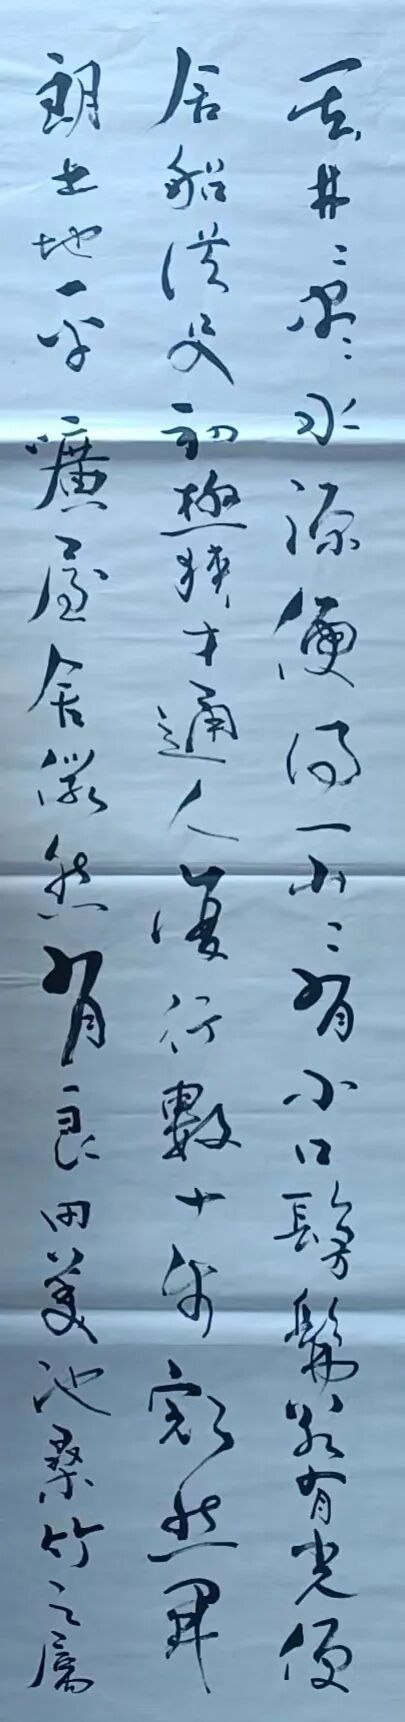 其林〻盡水源便得一山〻有小口髣髴若有光便
舍船從口入初極狹才通人復行數十步豁然開
朗土地平曠屋舍儼然有良田美池桑竹之屬